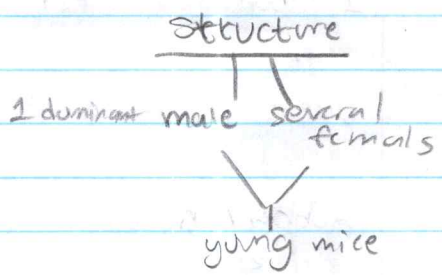 Structure
1 dominant male several
females
young mice